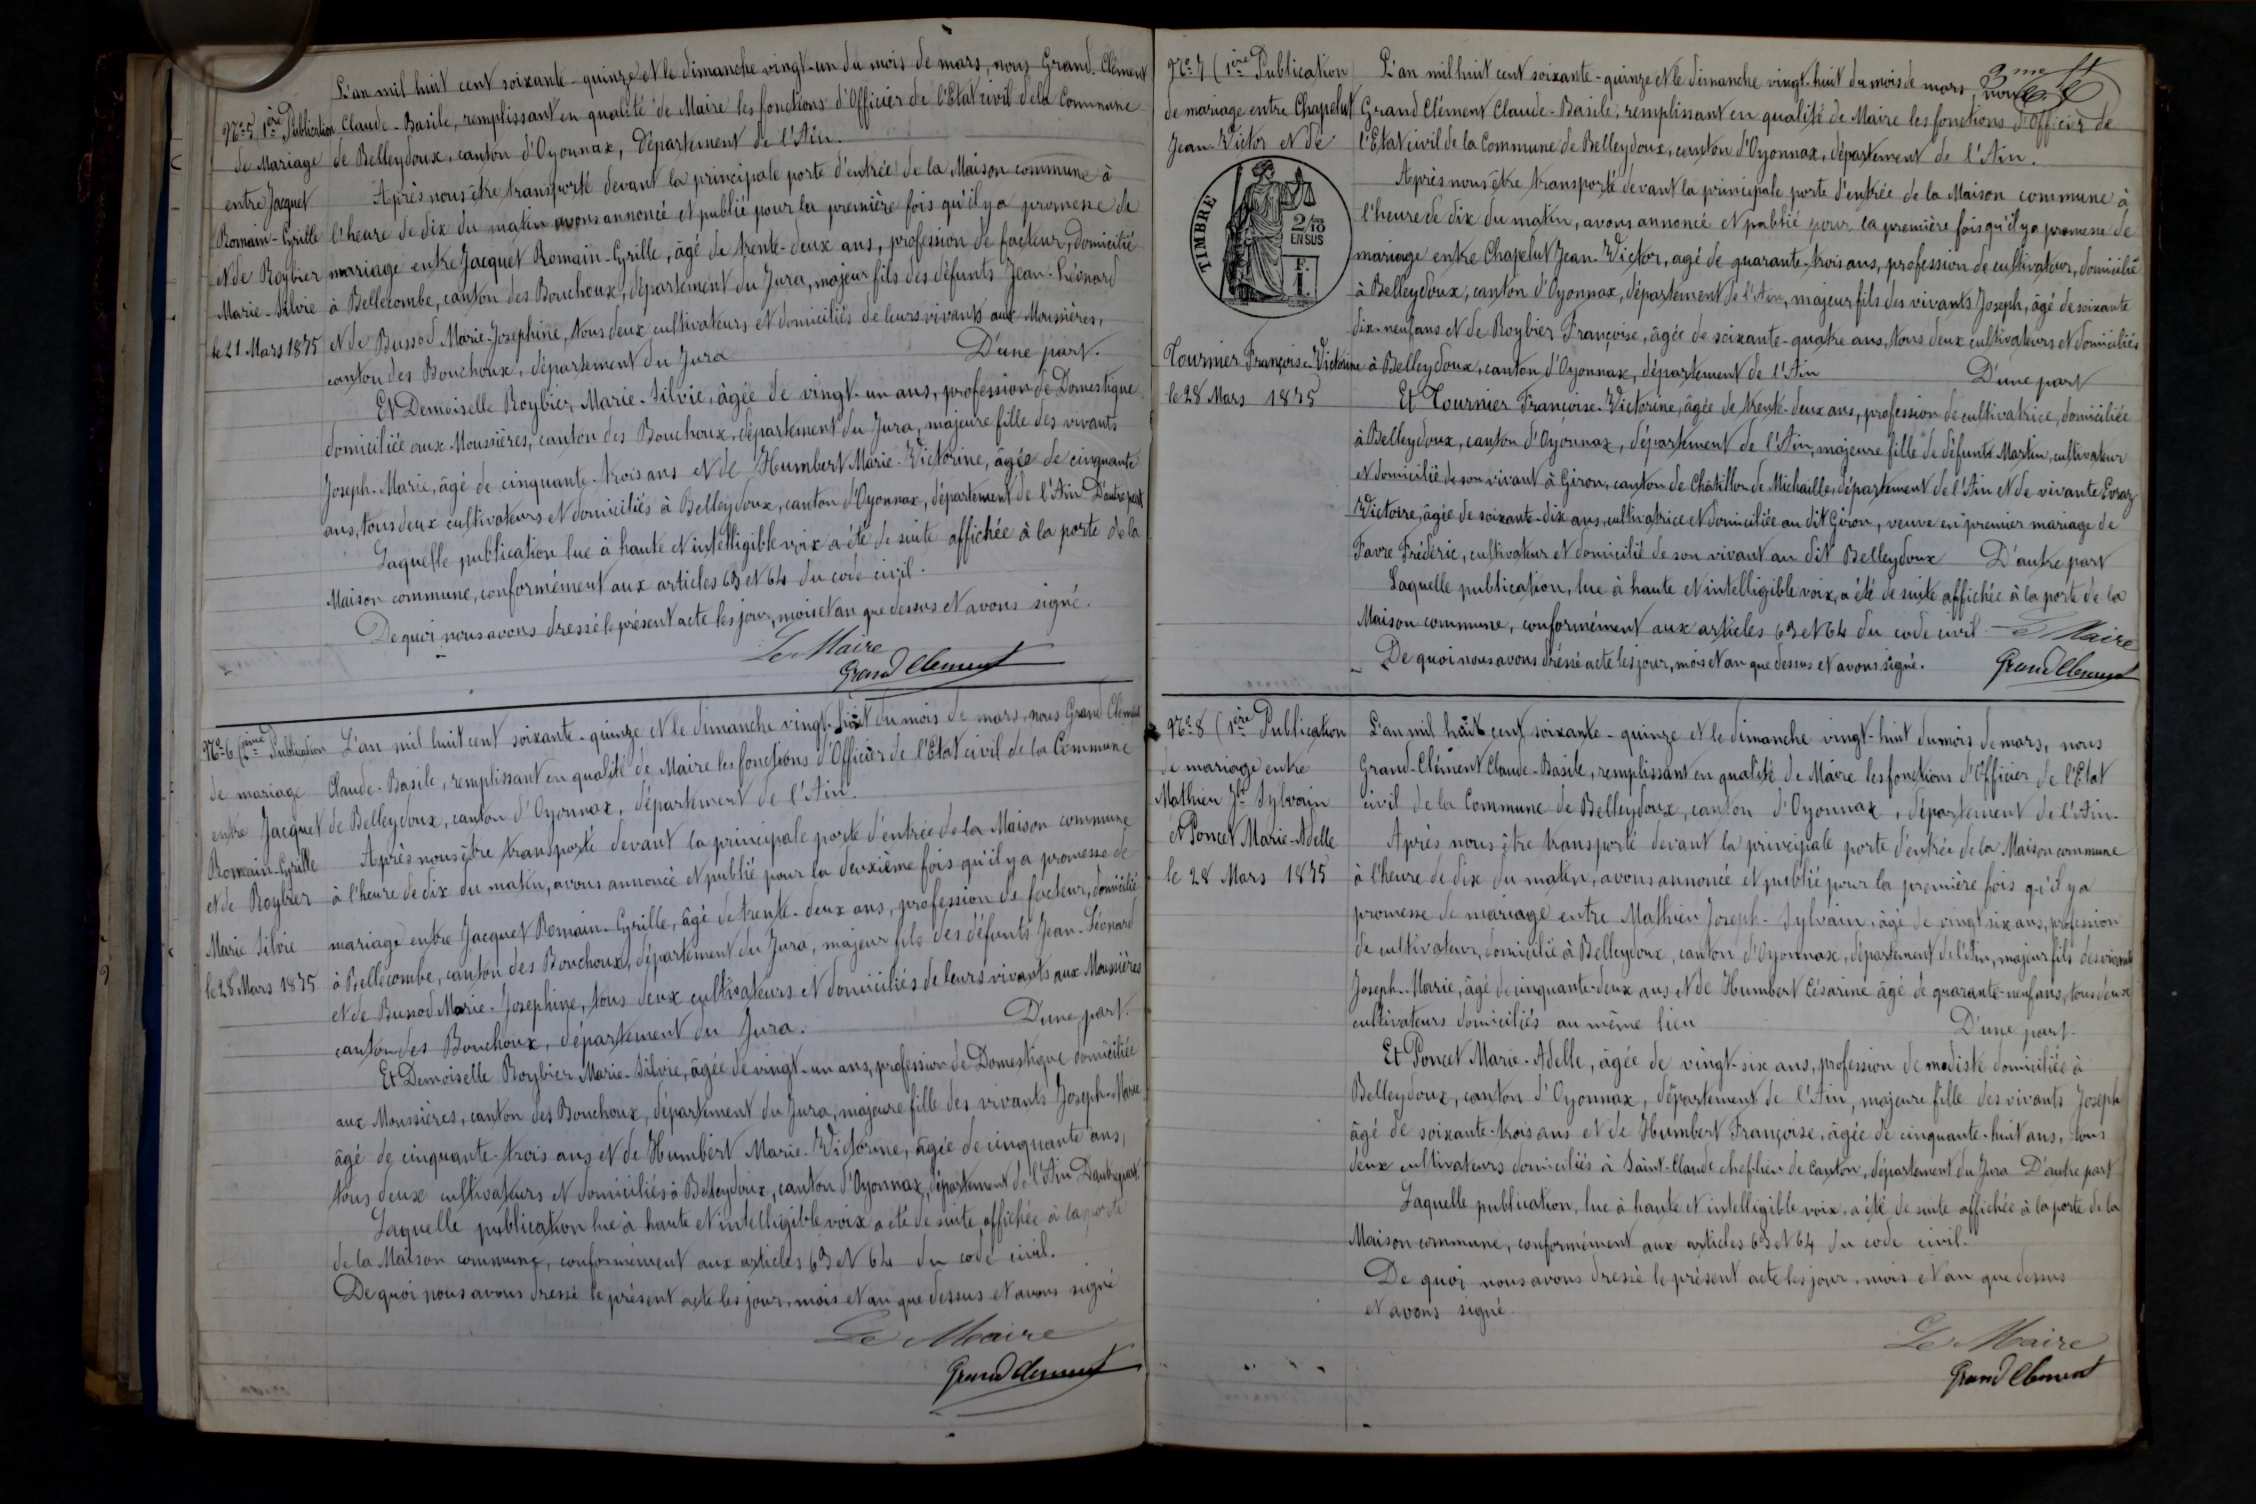 L'an mil huit cent soixante-quinze et le dimanche vingt-un du mois de mars, nous Grand-Clément
Claude-Basile, remplissant en qualité de Maire les fonctions d'Officier de l'Etat civil de la Commune
de Belleydoux, canton d'Oyonnax, département de l'Ain.
Après nous être transporté devant la principale porte d'entrée de la Maison commune à
l'heure de dix du matin avons annoncé et publié pour la première fois qu'il y a promesse de
mariage entre Jacquet Romain-Cyrille, âgé de trente-deux ans, profession de facteur, domicilié
à Bellecombe, canton des Bouchoux, département du Jura, majeur fils des défunts Jean-Léonard
et de Bussod Marie-Josephine, tous deux cultivateurs et domiciliés de leurs vivants aux Moussières,
canton des Bouchoux, département du Jura D'une part.
Et Demoiselle Roybier Marie-Silvie, âgée de vingt-un ans, profession de Domestique
domiciliée aux Moussières, canton des Bouchoux, département du Jura, majeure fille des vivants
Joseph-Marie, âgé de cinquante-trois ans et de Humbert Marie-Victorine, âgée de cinquante
ans, tous deux cultivateurs et domiciliés à Belleydoux, canton d'Oyonnax, département de l'Ain D'autre part
Laquelle publication lue à haute et intelligible voix a été de suite affichée à la porte de la
Maison commune, conformément aux articles 63 et 64 du code civil.
De quoi nous avons dressé le présent acte les jour, mois et an que dessus et avons signé.
Le Maire
Grand Clement
No 5, 1ère Publication
de Mariage
entre Jacquet
Romain-Cyrille
et de Roybier
Marie-Silvie
le 21 Mars 1875
No 6 (2ème Publication
de mariage
entre Jacquet
Romain-Cyrille
et de Roybier
Marie Silvie
le 28 Mars 1875
L'an mil huit cent soixante-quinze et le dimanche vingt-huit du mois de mars, nous Grand Clément
Claude-Basile, remplissant en qualité de Maire les fonctions d'Officier de l'Etat civil de la Commune
de Belleydoux, canton d'Oyonnax, département de l'Ain.
Après nous être transporté devant la principale porte d'entrée de la Maison commune
à l'heure de dix du matin, avons annoncé et publié pour la deuxième fois qu'il y a promesse de
mariage entre Jacquet Romain-Cyrille, âgé de trente-deux ans, profession de facteur, domicilié
à Bellecombe, canton des Bouchoux, département du Jura, majeur fils des défunts Jean-Léonard
et de Bussod Marie-Josephine, tous deux cultivateurs et domiciliés de leurs vivants aux Moussières
canton des Bouchoux, département du Jura. D'une part.
Et Demoiselle Roybier Marie-Silvie, âgée de vingt-un ans, profession de Domestique domiciliée
aux Moussières, canton des Bouchoux, département du Jura, majeure fille des vivants Joseph-Marie
âgé de cinquante-trois ans et de Humbert Marie-Victorine, âgée de cinquante ans,
tous deux cultivateurs et domiciliés à Belleydoux, canton d'Oyonnax, département de l'Ain D'autre part.
Laquelle publication lue à haute et intelligible voix a été de suite affichée à la porte
de la Maison commune, conformément aux articles 63 et 64 du code civil.
De quoi nous avons dressé le présent acte les jour, mois et an que dessus et avons signé
Le Maire
Grand Clement
No 7 (1ère Publication
de mariage entre Chapelut
Jean-Victor et de
TIMBRE
2/10
EN SUS
F.
1.
Tournier Françoise-Victorine
le 28 Mars 1875
3me
L'an mil huit cent soixante-quinze et le dimanche vingt-huit du mois de mars, nous
Grand Clément Claude-Basile, remplissant en qualité de Maire les fonctions d'Officier de
l'Etat civil de la Commune de Belleydoux, canton d'Oyonnax, département de l'Ain.
Après nous être transporté devant la principale porte d'entrée de la Maison commune à
l'heure de dix du matin, avons annoncé et publié pour la première fois qu'il y a promesse de
mariage entre Chapelut Jean-Victor, agé de quarante-trois ans, profession de cultivateur, domicilié
à Belleydoux, canton d'Oyonnax, département de l'Ain, majeur fils des vivants Joseph, âgé de soixante
dix-neuf ans et de Roybier Françoise, âgée de soixante-quatre ans, tous deux cultivateurs et domiciliés
à Belleydoux, canton d'Oyonnax, département de l'Ain D'une part
Et Tournier Françoise-Victorine, âgée de trente-deux ans, profession de cultivatrice, domiciliée
à Belleydoux, canton d'Oyonnax, département de l'Ain, majeure fille de défunts Martin, cultivateur
et domicilié de son vivant à Giron, canton de Châtillon de Michaille, département de l'Ain et de vivante Evraz
Victoire, âgée de soixante-dix ans, cultivatrice et domiciliée au dit Giron, veuve en premier mariage de
Favre Fréderic, cultivateur et domicilié de son vivant au dit Belleydoux D'autre part
Laquelle publication, lue à haute et intelligible voix, a été de suite affichée à la porte de la
Maison commune, conformément aux articles 63 et 64 du code civil Le Maire
De quoi nous avons dréssé acte les jour, mois et an que dessus et avons signé. Grand Clement
No 8 (1ère Publication
de mariage entre
Mathieu Jh Sylvain
et Poncet Marie-Adelle
le 28 Mars 1875
L'an mil huit cent soixante-quinze et le dimanche vingt-huit du mois de mars, nous
Grand-Clément Claude-Basile, remplissant en qualité de Maire les fonctions d'Officier de l'Etat
civil de la Commune de Belleydoux, canton d'Oyonnax, département de l'Ain.
Après nous être transporté devant la principale porte d'entrée de la Maison commune
à l'heure de dix du matin, avons annoncé et publié pour la première fois qu'il y a
promesse de mariage entre Mathieu Joseph-Sylvain, âgé de vingt six ans, profession
de cultivateur, domicilié à Belleydoux, canton d'Oyonnax, département de l'Ain, majeur fils des vivants
Joseph-Marie, âgé de cinquante-deux ans et de Humbert Césarine âgé de quarante-neuf ans, tous deux
cultivateurs domiciliés au même lieu D'une part.
Et Poncet Marie-Adelle, âgée de vingt-six ans, profession de modiste domiciliée à
Belleydoux, canton d'Oyonnax, département de l'Ain, majeure fille des vivants Joseph
âgé de soixante-trois ans et de Humbert Françoise, âgée de cinquante-huit ans, tous
deux cultivateurs domiciliés à Saint-Claude chef-lieu de canton, département du Jura D'autre part
Laquelle publication, lue à haute et intelligible voix, a été de suite affichée à la porte de la
Maison commune, conformément aux articles 63 et 64 du code civil.
De quoi nous avons dressé le présent acte les jour, mois et an que dessus
et avons signé.
Le Maire
Grand Clement